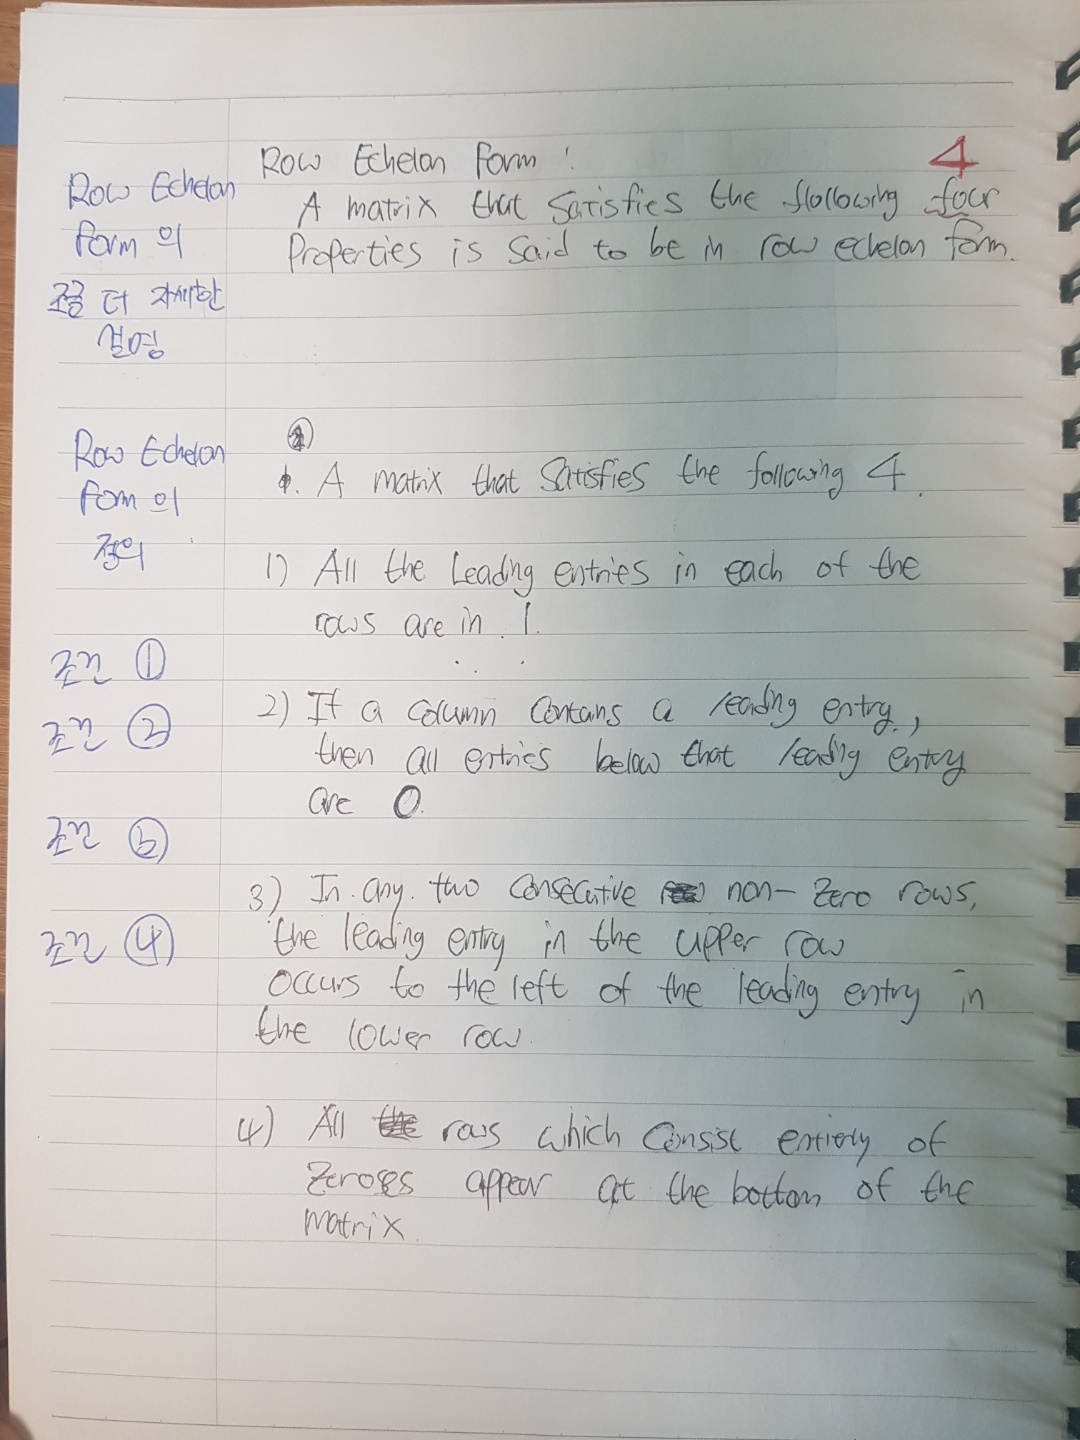 Row Echelon Form :
4
A matrix that Satisfies the flollowing four
Properties is said to be in row echelon form.
Row Echelon
form 의
조금 더 자세한
설명
Row Echelon
form 의
정의
A matrix that Satisfies the following 4.
1) All the Leading entries in each of the
rows are in 1.
조건 ①
조건 ②
2) If a column contans a leading entry,
then all entries below that leading entry
are 0.
조건 ③
조건 ④
3) In any two consecutive non-zero rows,
the leading entry in the upper row
occurs to the left of the leading entry in
the lower row
4) All rows which consist entirely of
appear at the bottom of the
matrix.